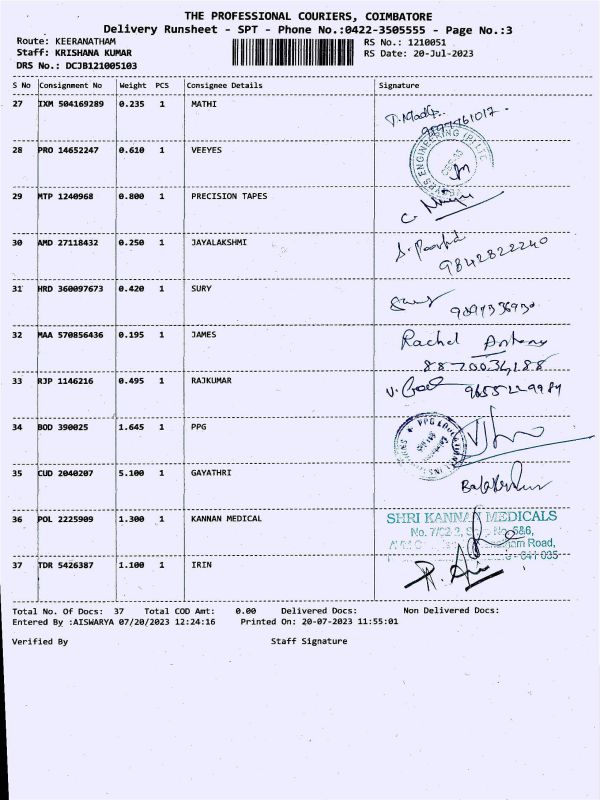 THE PROFESSIONAL COURIERS, COIMBATORE
Delivery Runsheet - SPT - Phone No.:0422-3505555 - Page No.:3
Route: KEERANATHAM RS No.: 1210051
Staff: KRISHANA KUMAR RS Date: 20-Jul-2023
DRS No.: DCJB121005103
S No Consignment No Weight PCS Consignee Details Signature
27 IXM 504169289 0.235 1 MATHI
28 PRO 14652247 0.610 1 VEEYES
ENGINEERING (P) LTD
29 MTP 1240968 0.800 1 PRECISION TAPES
30 AMD 27118432 0.250 1 JAYALAKSHMI
9842822240
31 HRD 360097673 0.420 1 SURY
32 MAA 570856436 0.195 1 JAMES Rachel Antony
8870034188
33 RJP 1146216 0.495 1 RAJKUMAR
34 BOD 390025 1.645 1 PPG
PPG
35 CUD 2040207 5.100 1 GAYATHRI
36 POL 2225909 1.300 1 KANNAN MEDICAL SHRI KANNAN MEDICALS
Road,
641 035
37 TDR 5426387 1.100 1 IRIN
Total No. Of Docs: 37 Total COD Amt: 0.00 Delivered Docs: Non Delivered Docs:
Entered By :AISWARYA 07/20/2023 12:24:16 Printed On: 20-07-2023 11:55:01
Verified By Staff Signature